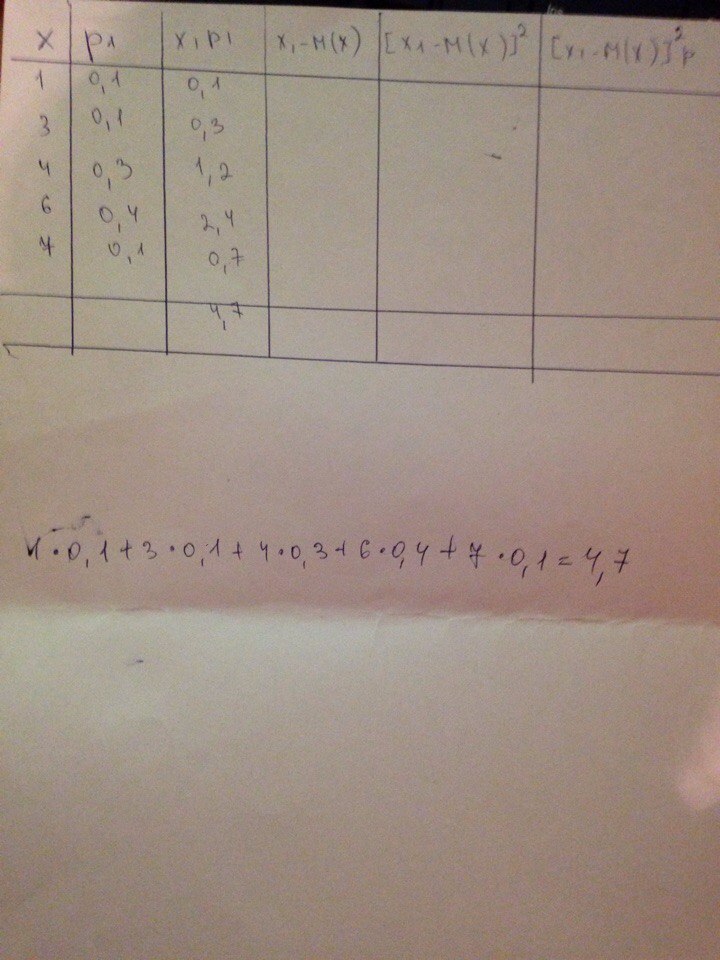 x p1 x1p1 x1-M(x) [x1-M(x)]² [x1-M(x)]²p
1 0,1 0,1
3 0,1 0,3
4 0,3 1,2
6 0,4 2,4
7 0,1 0,7
4,7
1·0,1+3·0,1+4·0,3+6·0,4+7·0,1=4,7